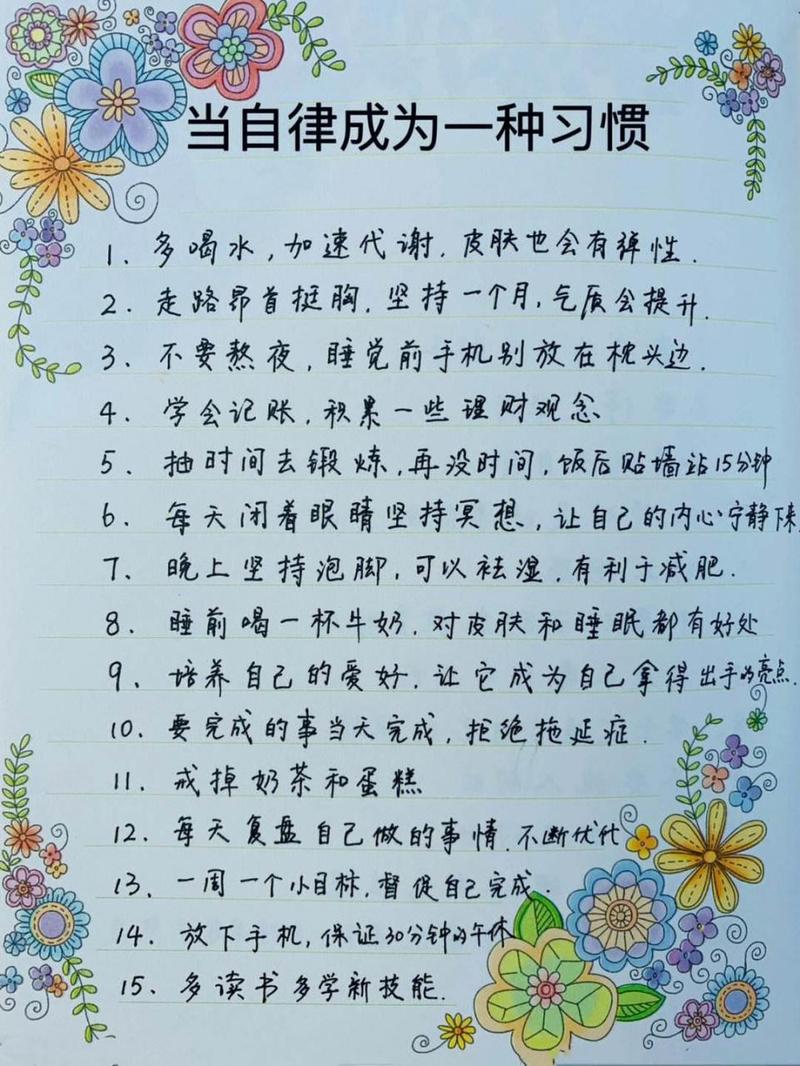 当自律成为一种习惯
1、多喝水，加速代谢，皮肤也会有弹性．
2、走路昂首挺胸，坚持一个月，气质会提升．
3、不要熬夜，睡觉前手机别放在枕头边．
4、学会记账，积累一些理财观念
5、抽时间去锻炼，再没时间，饭后贴墙站15分钟
6、每天闭着眼睛坚持冥想，让自己的内心宁静下来．
7、晚上坚持泡脚，可以祛湿，有利于减肥．
8、睡前喝一杯牛奶，对皮肤和睡眠都有好处
9、培养自己的爱好，让它成为自己拿得出手的亮点．
10、要完成的事当天完成，拒绝拖延症．
11、戒掉奶茶和蛋糕
12、每天复盘自己做的事情，不断优化
13、一周一个小目标，督促自己完成．
14、放下手机，保证30分钟的午休
15、多读书多学新技能．